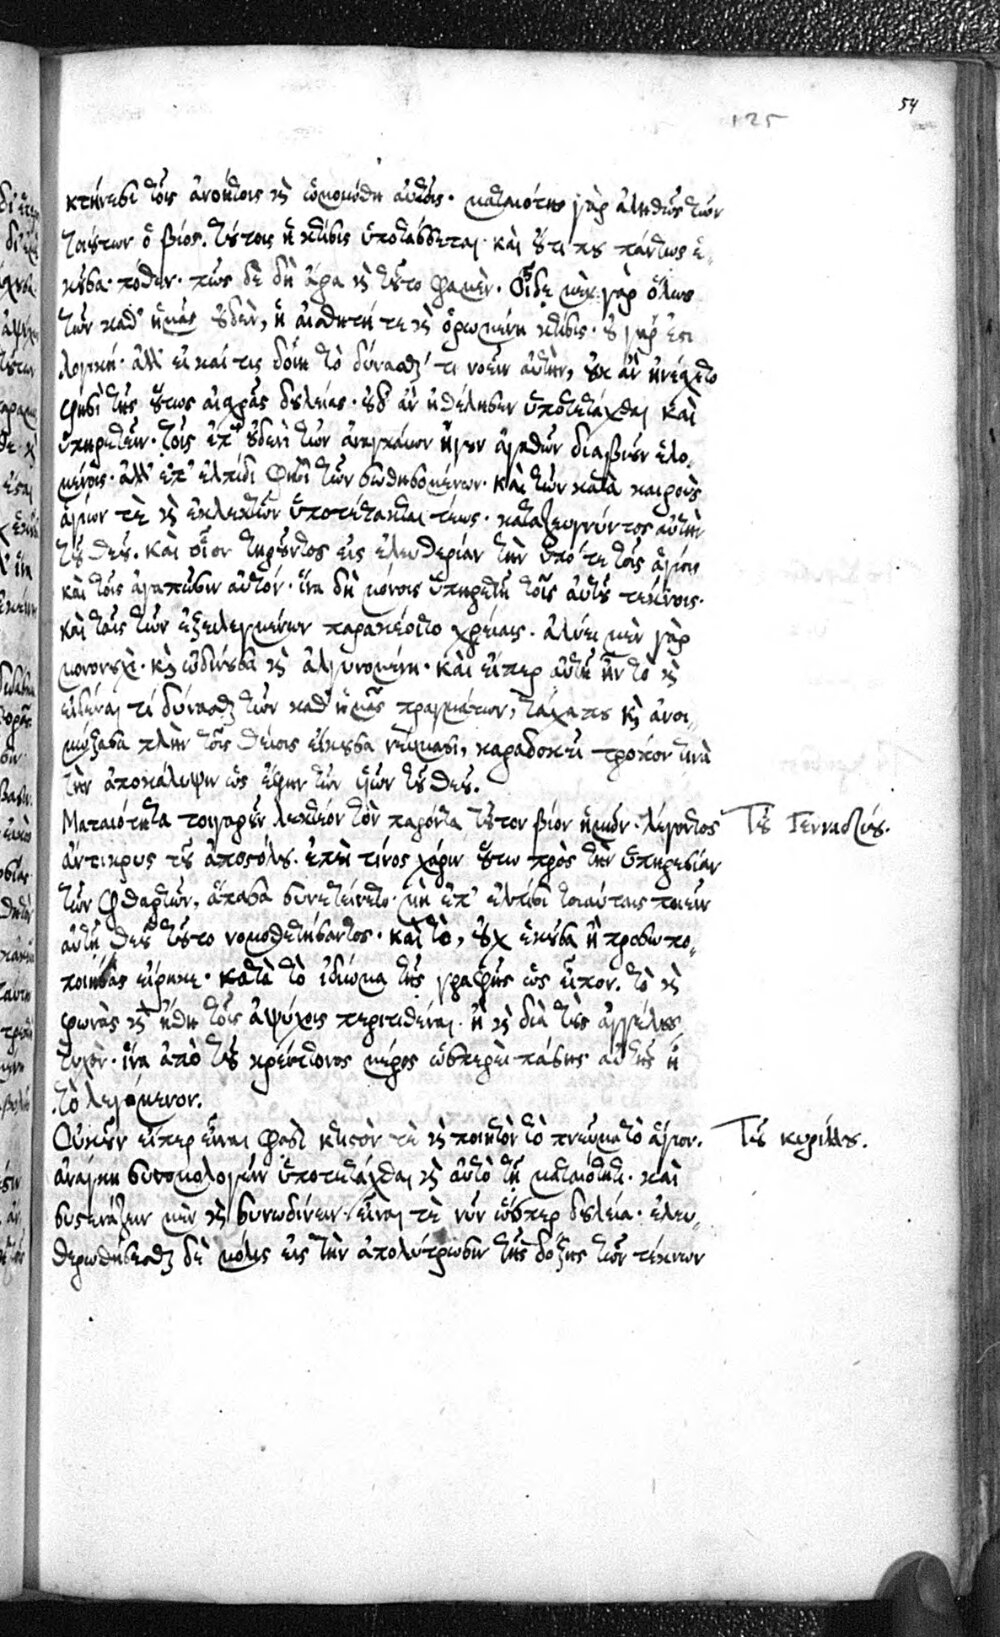 54
125
κτήνεσι τοῖς ἀνοήτοις καὶ ὡμοιώθη αὐτοῖς· ματαιότης γὰρ ἀληθῶς τῶν
τοιούτων ὁ βίος. τούτοις ἡ κτίσις ὑποτάσσεται· καὶ οὔτι που πάντως ἑ-
κοῦσα· πόθεν· πῶς δὲ δὴ ἄρα καὶ τοῦτο φαμέν· οἶδε μὲν γὰρ ὅλως
τῶν καθ' ἡμᾶς οὐδὲν, ἡ αἰσθητή τε καὶ ὁρωμένη κτίσις· οὐ γάρ ἐστι
λογική· ἀλλ' εἰ καί τις δοίη τὸ δύνασθαί τι νοεῖν αὐτὴν, οὐκ ἂν ἠνέσχετο
φησὶ τῆς οὕτως αἰσχρᾶς δουλείας· οὐδ' ἂν ἠθέλησεν ὑποτετάχθαι καὶ
ὑπηρετεῖν· τοῖς ἐπ' οὐδενὶ τῶν ἀναγκαίων ἤγουν ἀγαθῶν διαβιοῦν ἑλο-
μένοις· ἀλλ' ἐπ' ἐλπίδι φησὶ τῶν σωθησομένων· καὶ τῶν κατὰ καιροὺς
ἁγίων τὲ καὶ ἐκλεκτῶν ὑποτέτακται τέως· καταζευγνύντος αὐτὴν
τοῦ θεοῦ. καὶ οἷον τηροῦντος εἰς ἐλευθερίαν τὴν ὑπό τε τοῖς ἁγίοις
καὶ τοῖς ἀγαπῶσιν αὐτόν· ἵνα δὴ μόνοις ὑπηρετῇ τοῖς αὐτοῦ τέκνοις·
καὶ ταῖς τῶν ἐξειλεγμένων παρακέοιτο χρείαις· ἀλύει μὲν γὰρ
μονονουχὶ· καὶ ὠδίνουσα καὶ ἀλγυνομένη· καὶ εἴπερ αὐτῇ ἦν τὸ καὶ
εἰδέναι τί δύνασθαι τῶν καθ' ἡμᾶς πραγμάτων, τάχα που καὶ ἀνοι-
μώξασα πλὴν τοῖς θείοις εἴκουσα νεύμασι, καραδοκεῖ τρόπον τινὰ
τὴν ἀποκάλυψιν ὡς ἔφην τῶν υἱῶν τοῦ θεοῦ.
Ματαιότητα τοιγαροῦν λεκτέον τὸν παρόντα τοῦτον βίον ἡμῶν· λέγοντος
ἄντικρυς τοῦ ἀποστόλου. ἐπεὶ τίνος χάριν οὕτω πρὸς τὴν ὑπηρεσίαν
τῶν φθαρτῶν, ἅπασα συνετείνετο· μὴ ἐπ' ἐλπίσι τοιαύταις ποιεῖν
αὐτῇ θεοῦ τοῦτο νομοθετήσαντος· καὶ τὸ, οὐχ ἑκοῦσα ἢ προσωπο-
ποιήσας εἴρηκε· κατὰ τὸ ἰδίωμα τῆς γραφῆς ὡς εἶπον. τὸ καὶ
φωνὰς καὶ ἤθη τοῖς ἀψύχοις περιτιθέναι· ἢ καὶ διὰ τοὺς ἀγγέλους
τυχὸν· ἵνα ἀπὸ τοῦ κρείττονος μέρος ὥσπερεὶ πάσης αὐτῆς ᾖ
τὸ λεγόμενον.
Οὐκοῦν εἴπερ εἶναι φασὶ κτιστὸν τὲ καὶ ποιητὸν τὸ πνεῦμα τὸ ἅγιον.
ἀνάγκη συνομολογεῖν ὑποτετάχθαι καὶ αὐτὸ τῇ ματαιότητι· καὶ
συστενάζειν μὲν καὶ συνωδίνειν· εἶναι τὲ νῦν ὥσπερ δουλεία· ἐλευ-
θερωθήσεσθαι δὲ μόλις εἰς τὴν ἀπολύτρωσιν τῆς δόξης τῶν τέκνων
Τοῦ Γενναδίου.
Τοῦ κυρίλλου.